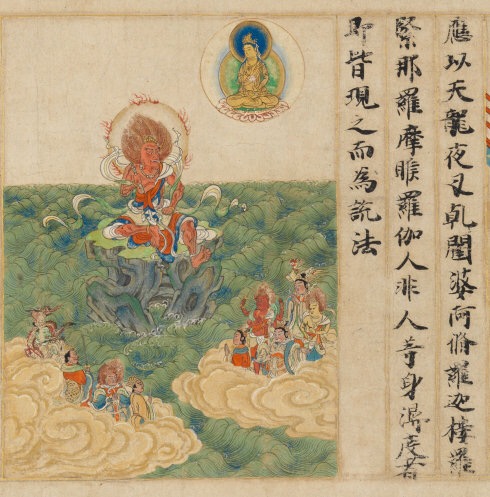 應以天龍夜叉乹闥婆阿脩羅迦樓羅
緊那羅摩睺羅伽人非人等身得度者
即皆現之而為說法